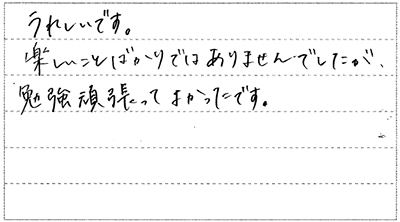 うれしいです。
楽しいことばかりではありませんでしたが、
勉強頑張ってよかったです。